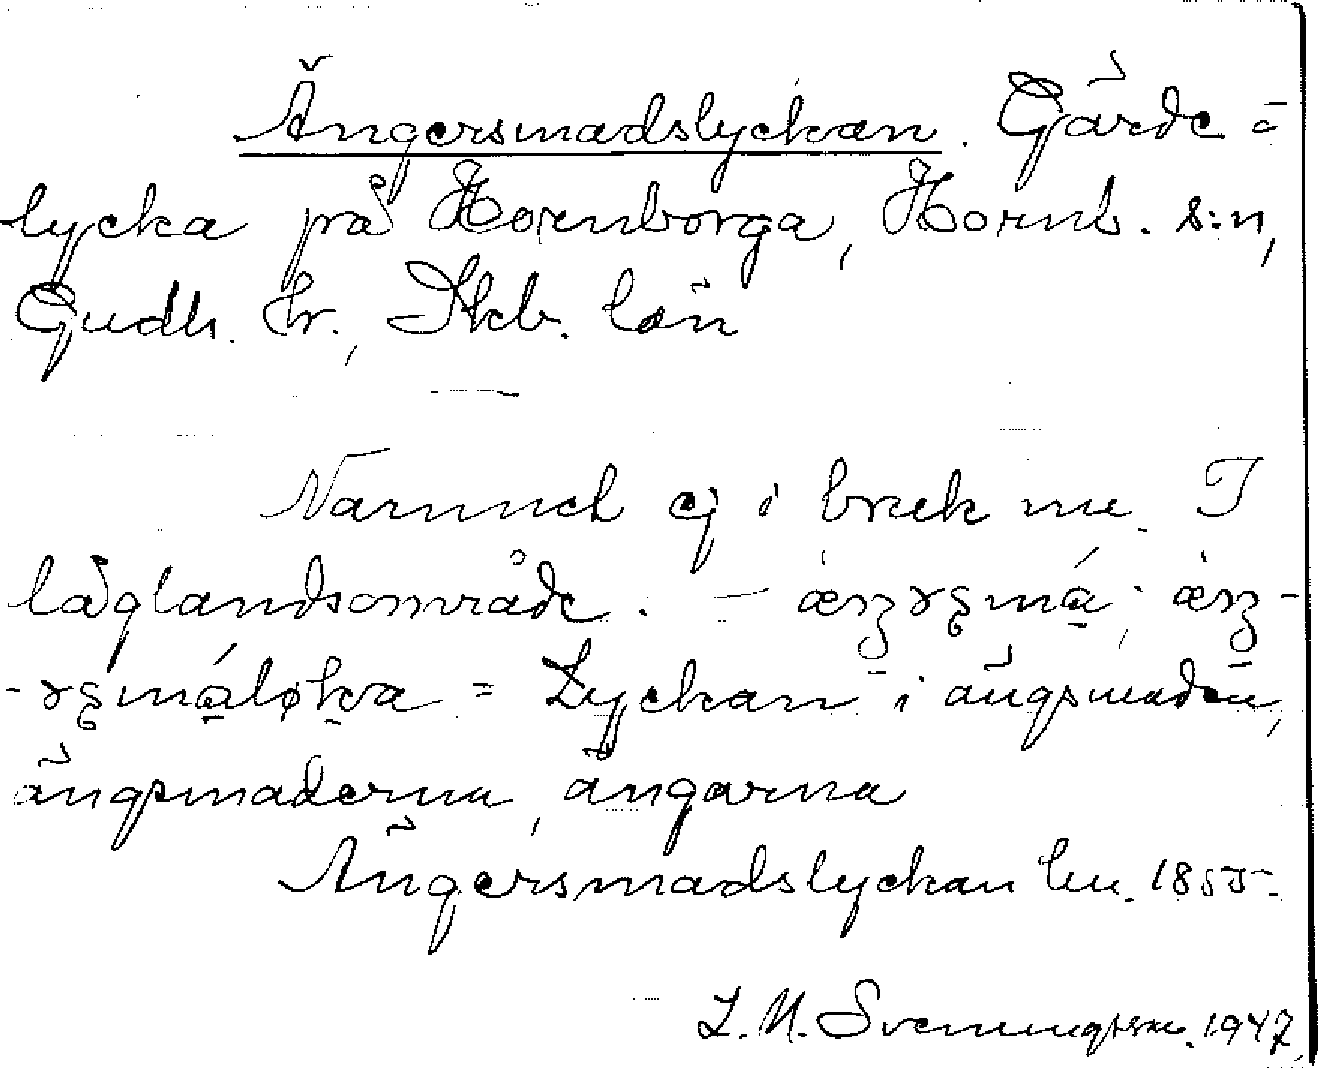 Ängersmadslyckan. Gärde =
lycka på Hornborga, Hornb. s:n,
Gudh. hr., Skb. län
Namnet ej i bruk nu. I
låglandsområde. –
= Lyckan i ängsmaden,
ängsmaderna, ängarna
Ängersmadslyckan lm. 1855.
L. M. Svenungsson. 1947